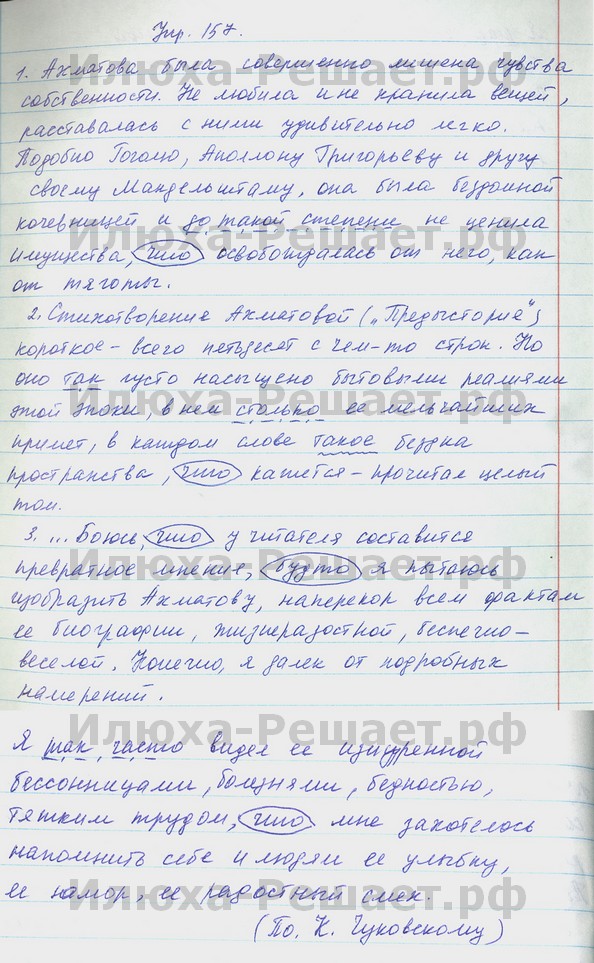 Упр. 157.
1. Ахматова была совершенно лишена чувства
собственности. Не любила и не хранила вещей,
расставалась с ними удивительно легко.
Подобно Гоголю, Аполлону Григорьеву и другу
своему Мандельштаму, она была бездомной
кочевницей и до такой степени не ценила
имущества, что освобождалась от него, как
от тяготы.
2. Стихотворение Ахматовой („Предыстория“)
короткое – всего петьдесят с чем-то строк. Но
оно так густо насыщено бытовыми реалиями
этой эпохи, в нем столько ее мельчайших
примет, в каждом слове такое бездна
пространства, что кажется – прочитал целый
том.
3. ... Боюсь, что у читателя составится
превратное мнение, будто я пытаюсь
изобразить Ахматову, наперекор всем фактам
ее биографии, жизнерадостной, беспечно-
веселой. Конечно, я далек от подробных
намерений.
Я так часто видел ее изнуренной
бессонницами, болезнями, бедностью,
тяжким трудом, что мне захотелось
напомнить себе и людям ее улыбку,
ее юмор, ее радостный смех.
(По. К. Чуковскому)
Илюха-Решает.рф
Илюха-Решает.рф
Илюха-Решает.рф
Илюха-Решает.рф
Илюха-Решает.рф
Илюха-Решает.рф
Илюха-Решает.рф